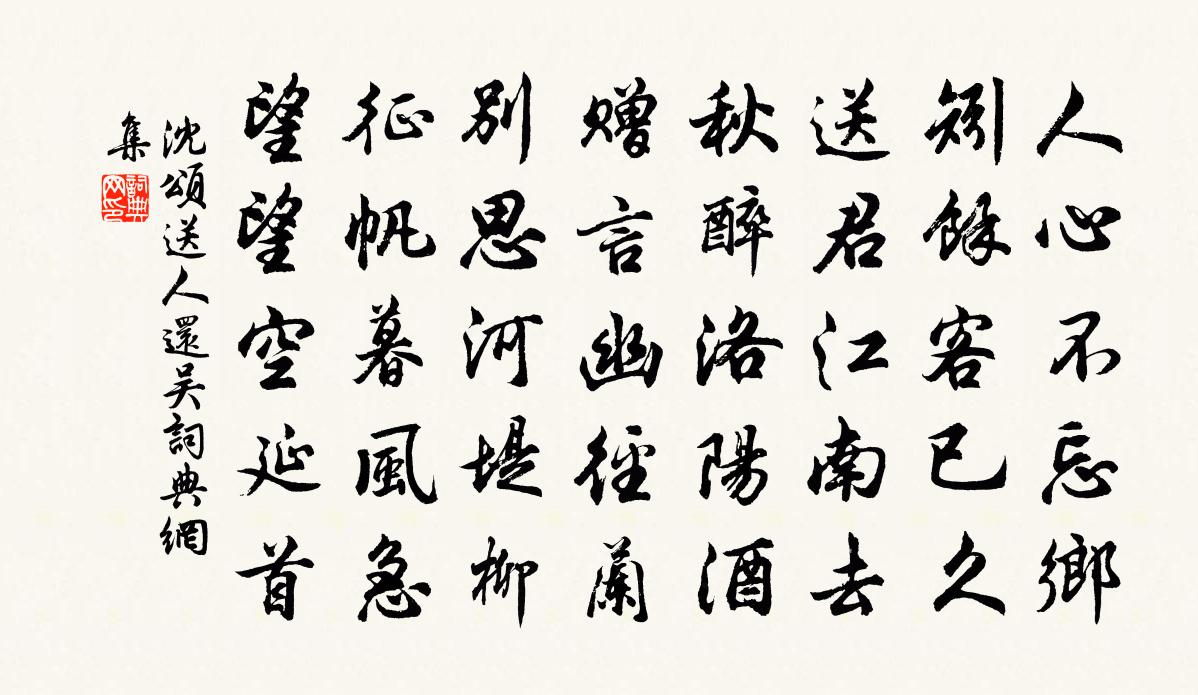 人心不忘鄉
矧餘客已久
送君江南去
秋醉洛陽酒
贈言幽徑蘭
別思河堤柳
征帆暮風急
望望空延首
沈頌送人還吳詞典網
集
詞典
网印